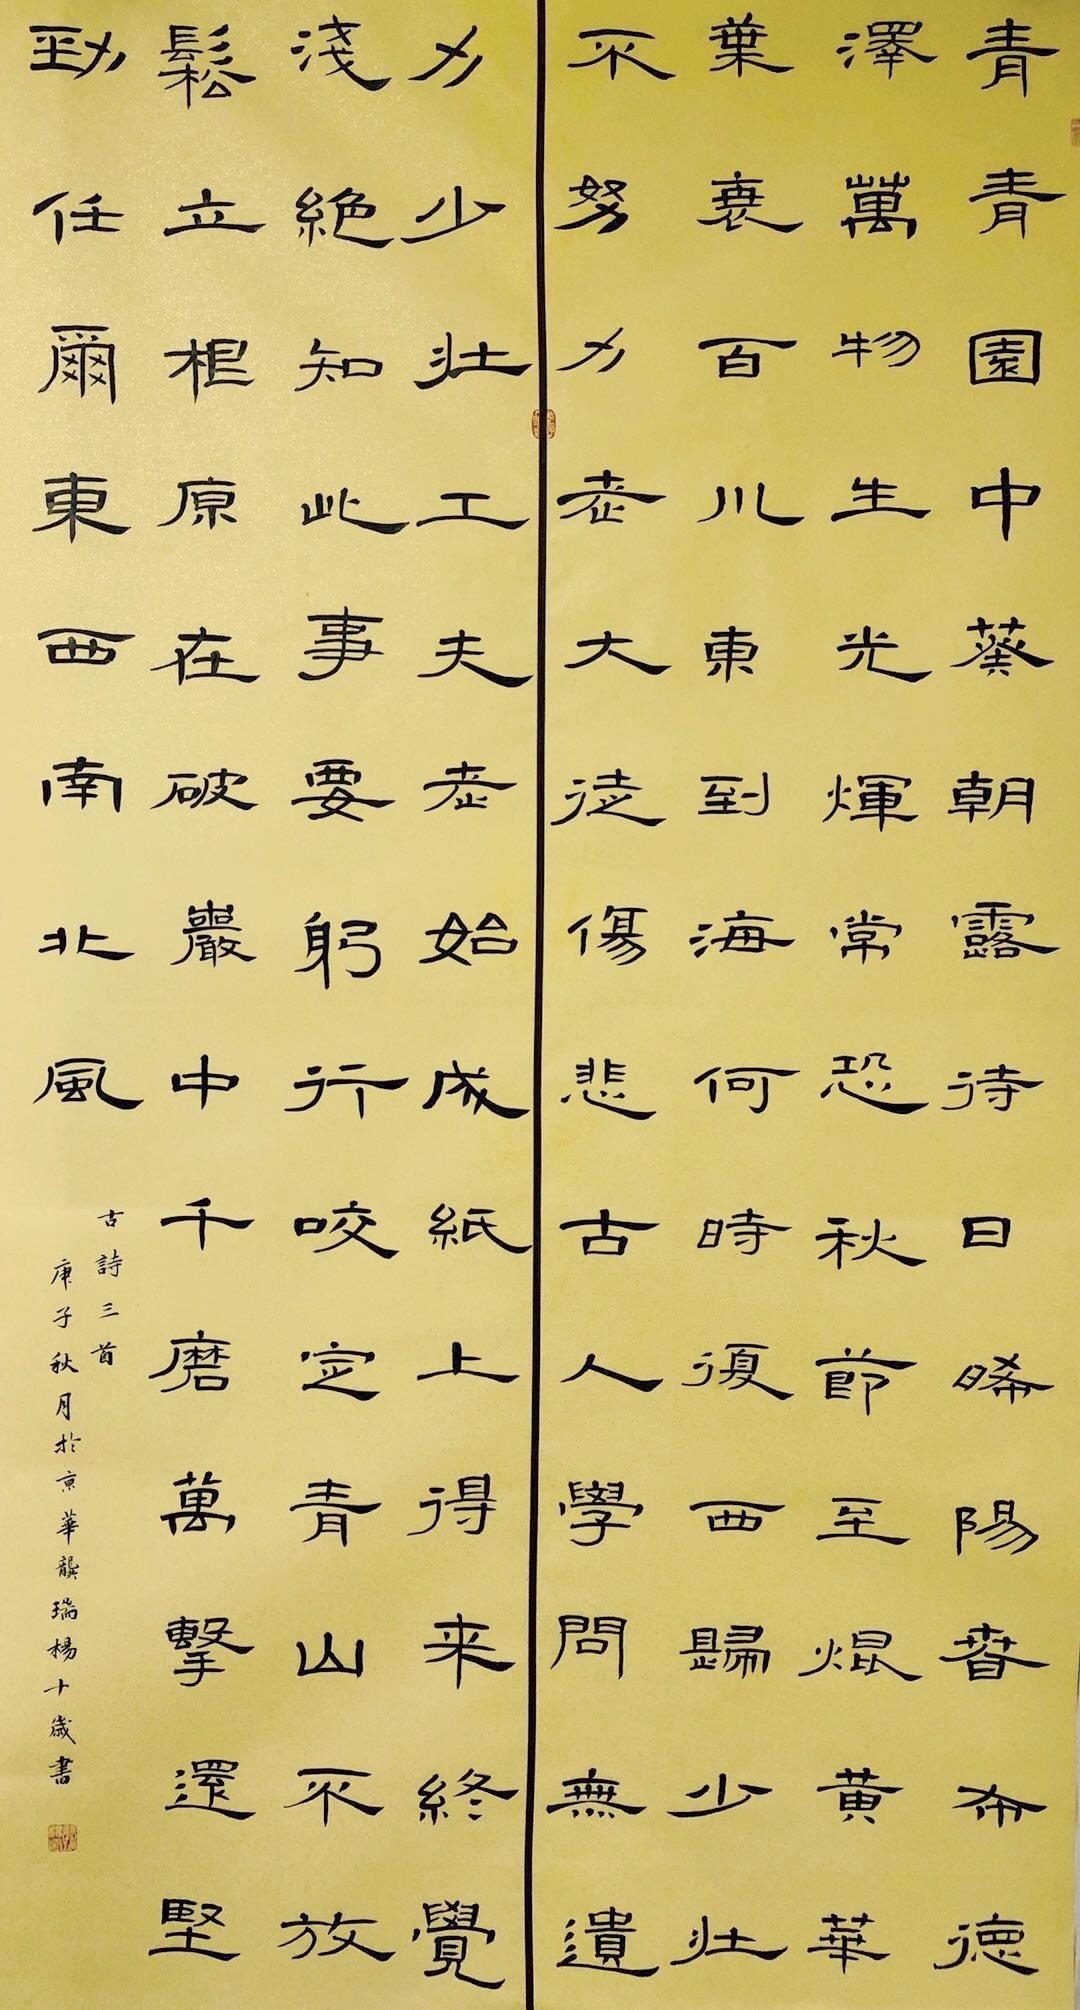 青青園中葵朝露待日晞陽春布德
澤萬物生光輝常恐秋節至焜黃華
葉衰百川東到海何時復西歸少壯
不努力老大徒傷悲古人學問無遺
力少壯工夫老始成紙上得來終覺
淺絕知此事要躬行咬定青山不放
鬆立根原在破巖中千磨萬擊還堅
勁任爾東西南北風
古詩三首
庚子秋月於京華龔瑞楊十歲書